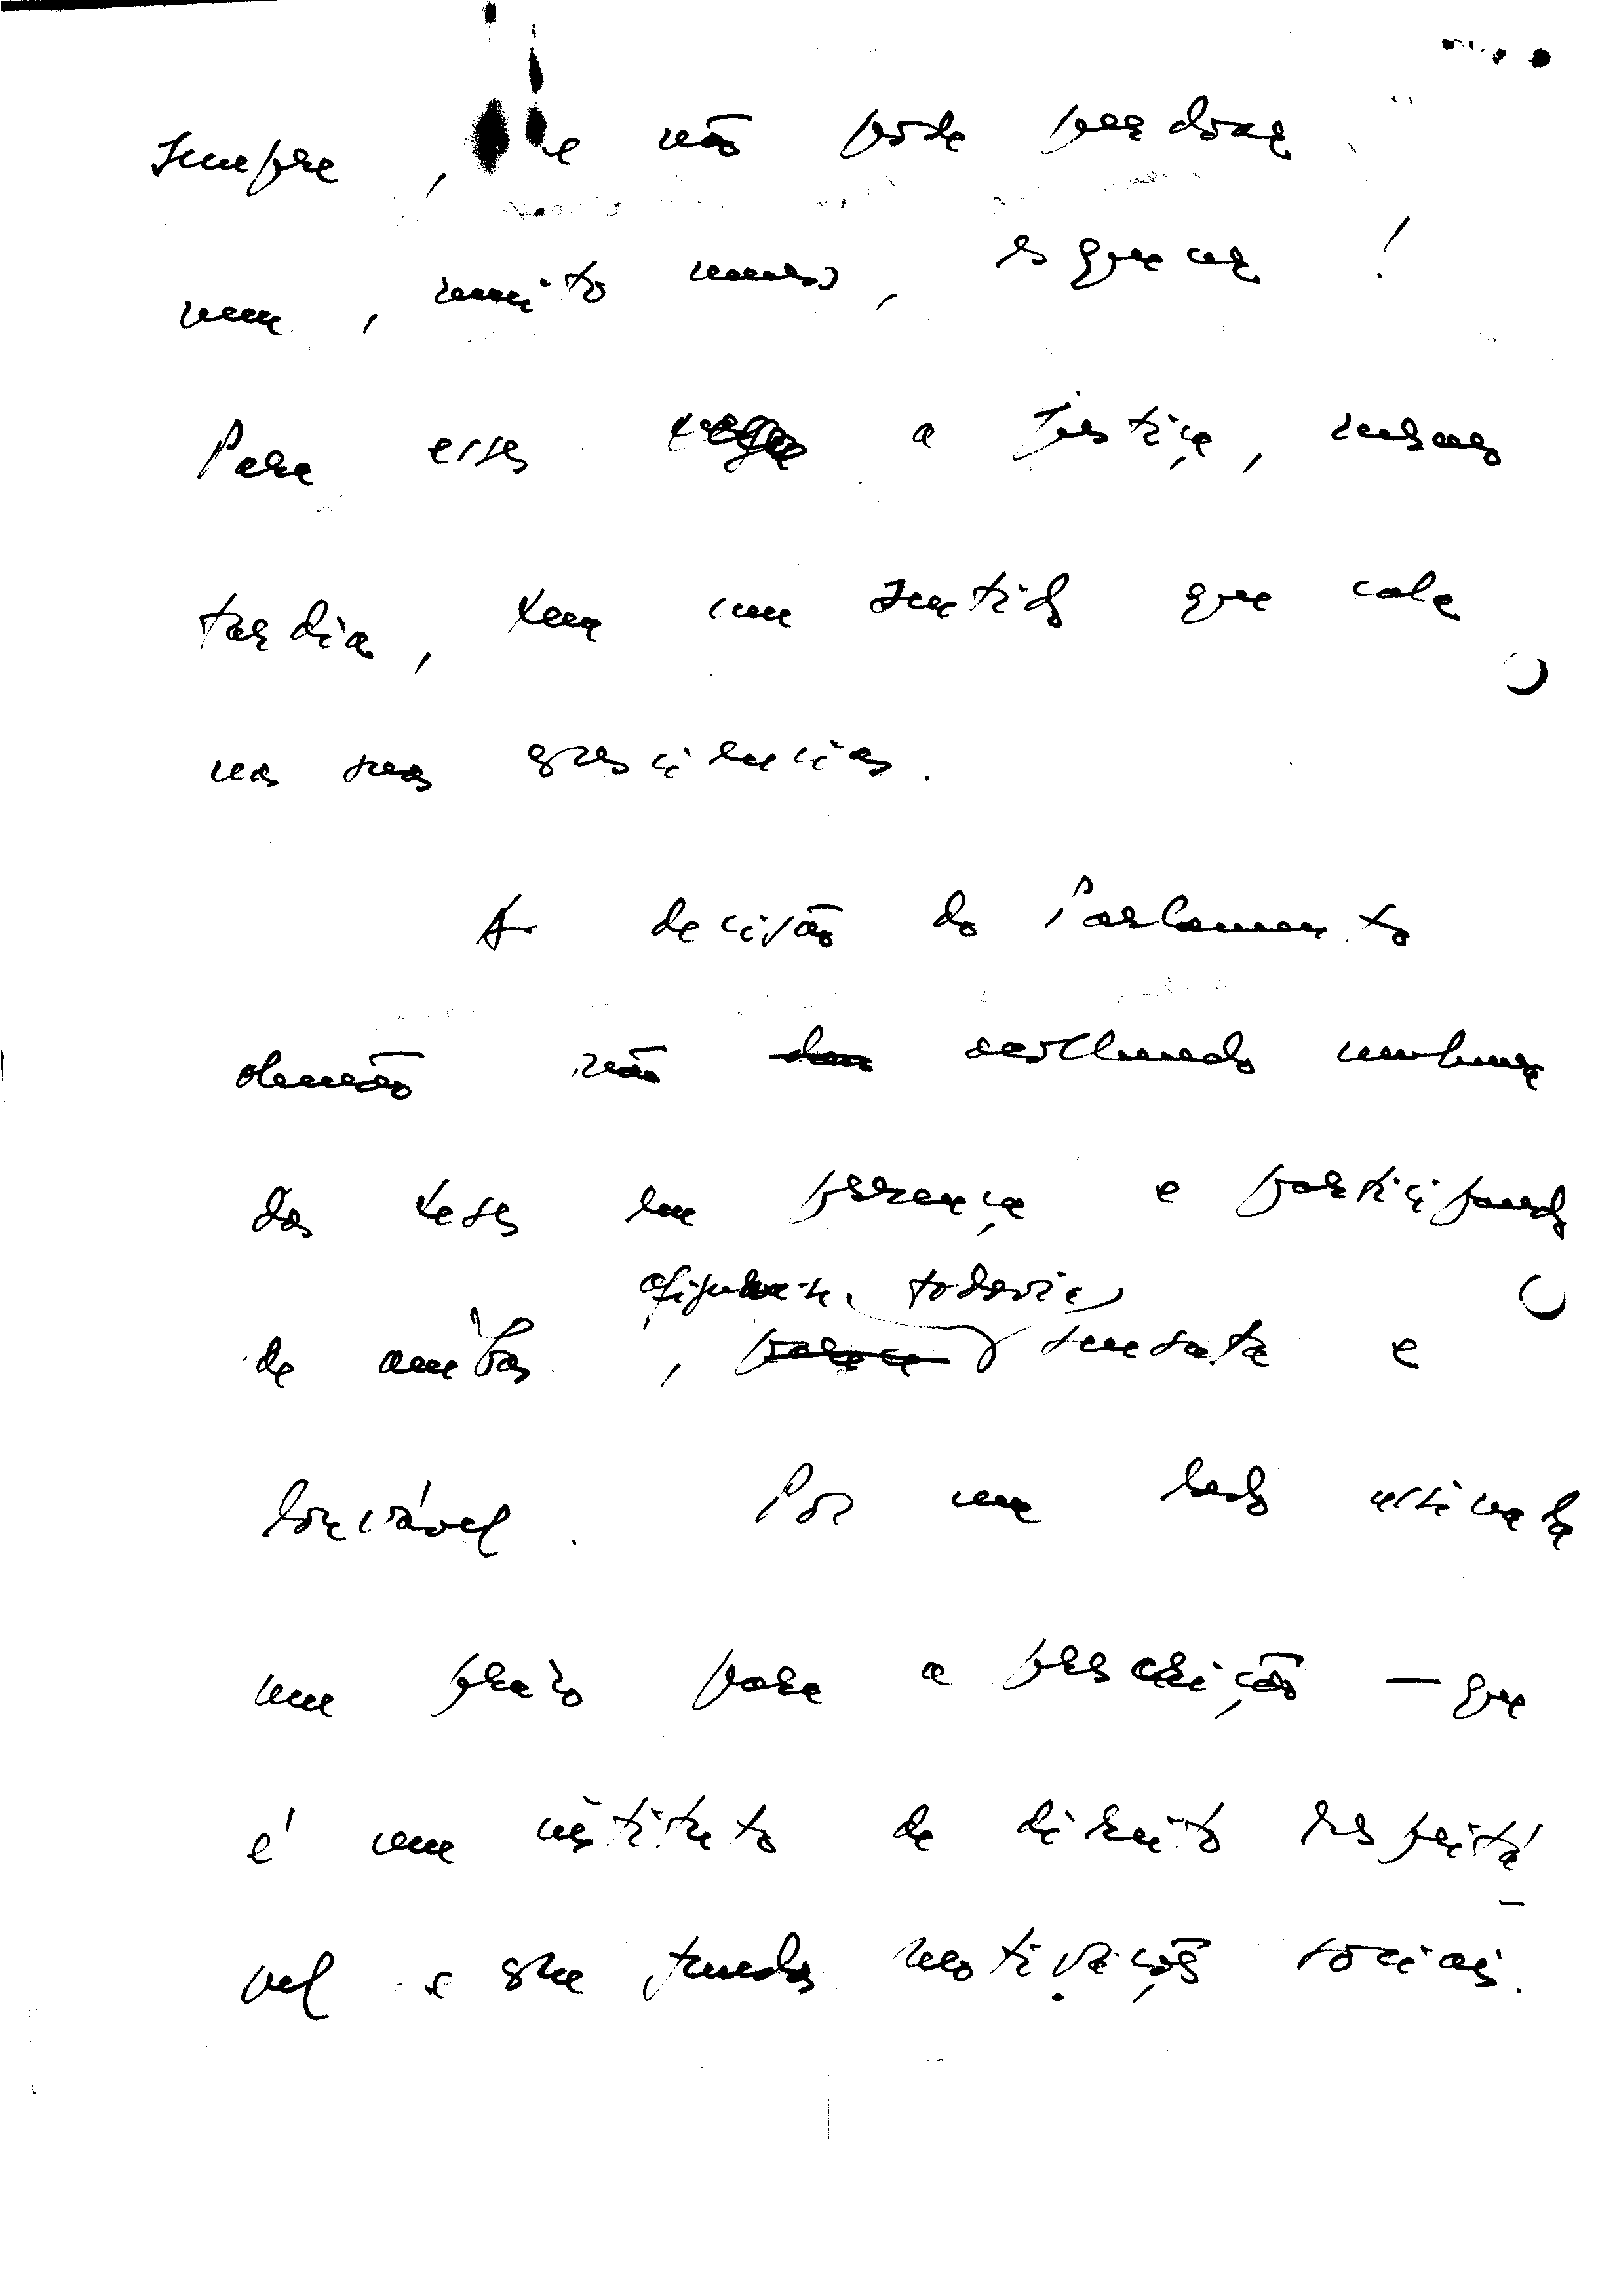 sempre, e não pode perdoar
nem, muito menos, esquecer!
Para esses a justiça, mesmo
tardia, tem um sentido que cala
nas suas consciências.
A decisão do Parlamento
alemão não acolhendo nenhuma
das teses em presença e participando
afigura-se, todavia,
de ambas, sensata e
louvável. Por um lado
um prazo para a prescrição — que
é um instituto de direito respeitá-
vel e com fundas motivações sociais.